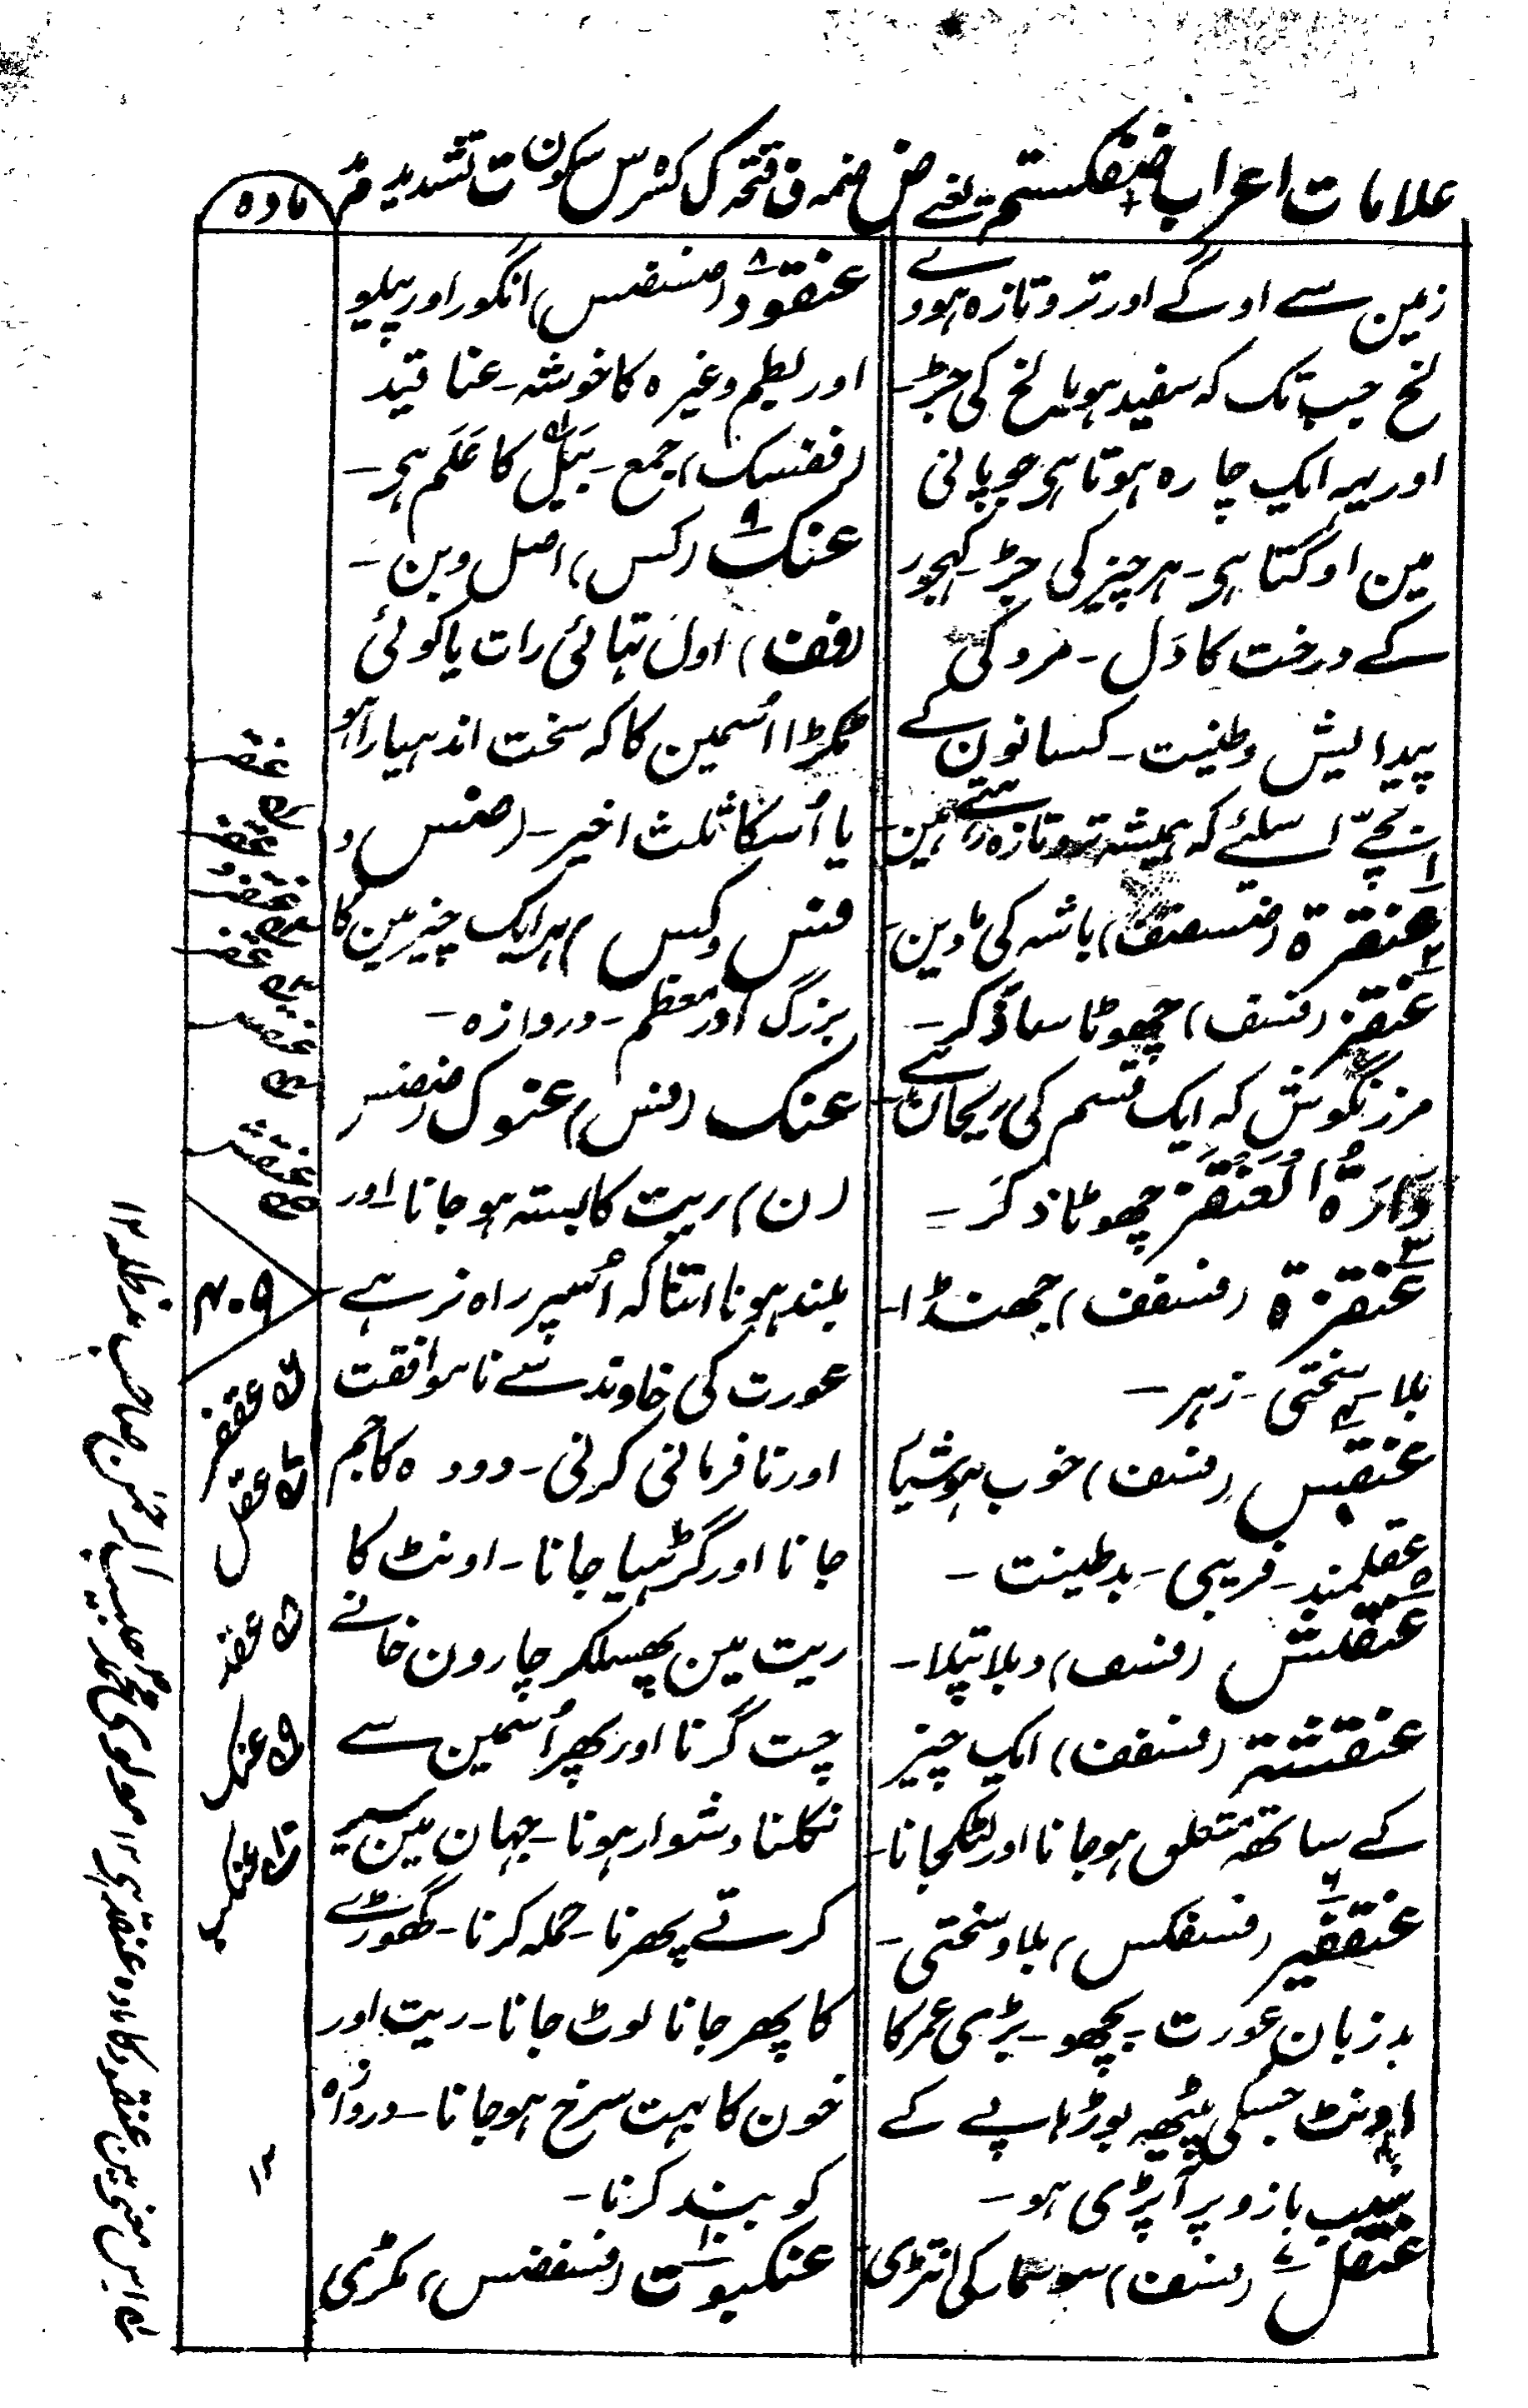 علامات اعراب ضفکستم یعنے ض ضمہ ف فتحہ ک کسرہ س سکون ت تشدید م مد
مادہ
زمین سے اوگے اور تر و تازہ ہووے
لخ جب تک کہ سفید ہو یا لخ کی جڑ-
اور یہ ایک چارہ ہوتا ہی جو پانی
مین اوگتا ہی- ہر چیز کی جڑ- کہجور
کے درخت کا دَل - مرد کی
پیدایش وطینت- کسانون کے
بچّے اسلئے کہ ہمیشہ تر و تازہ رہتے ہین-
۱ عنقرة (ضسضتف) باشہ کی مادین-
۲ عنقز (فسف) چھوٹا سا ذکر-
مرزنگوش کہ ایک قسم کی ریحان ہے-
دَارَةُ الْعَنْقَز چھوٹا ذکر-
۳ عنقزة (فسفف) جھنڈا-
بلا سختی- زہر-
عنقس (فسف) خوب ہوشیار
عقلمند- فریبی- بدطینت-
۵ عنقش (فسف) دبلا پتلا-
عنقشة (فسفف) ایک چیز
کے ساتھ متعلق ہو جانا اور لٹکجانا-
۶ عنقفیر (فسفکس) بلا و سختی-
بدزبان عورت- بچھو- بڑی عمر کا
اونٹ جسکی پیٹھہ بوڑھاپے کے
سبب بازو پر آپڑی ہو-
۷ عنقل (فسف) سوسمار کی انتڑی
۸ عنقود (ضسضس) انگور اور پیلو
اور بطم وغیرہ کا خوشہ- عناقید
(ففسک) جمع- بَیل کا عَلَم ہی-
۹ عنک (کس) اصل و بن-
(فف) اول تہائی رات یا کوئی
ٹکڑا اُسمین کا کہ سخت اندہیارا ہو
یا اُسکا ثلث اخیر- (ضس و
فس و کس) ہر ایک چیز مین کا
بزرگ اور معظم- دروازہ-
عنک (فس) عنوک (ضضس
(ن) ریت کا بستہ ہو جانا اور
بلند ہونا اتنا کہ اُسپر راہ نرہے-
عورت کی خاوند سے ناموافقت
اور نافرمانی کرنی- دودہ کا جم
جانا اور گڑہیا جانا- اونٹ کا
ریت مین پھسلکر چارون خانے
چت گرنا اور پھر اُسمین سے
نکلنا دشوار ہونا- جہان مین سیر
کرتے پھرنا- حملہ کرنا- گھوڑے
کا پھر جانا لوٹ جانا- ریت اور
خون کا بہت سرخ ہو جانا- دروازہ
کو بند کرنا-
۱۰ عنکبوت (فسفضس) مکڑی
عنقر
عنقز
عنقس
عنقش
۴۰۹
عقفر
عقل
عقد
عنک
عنکب
۱۲